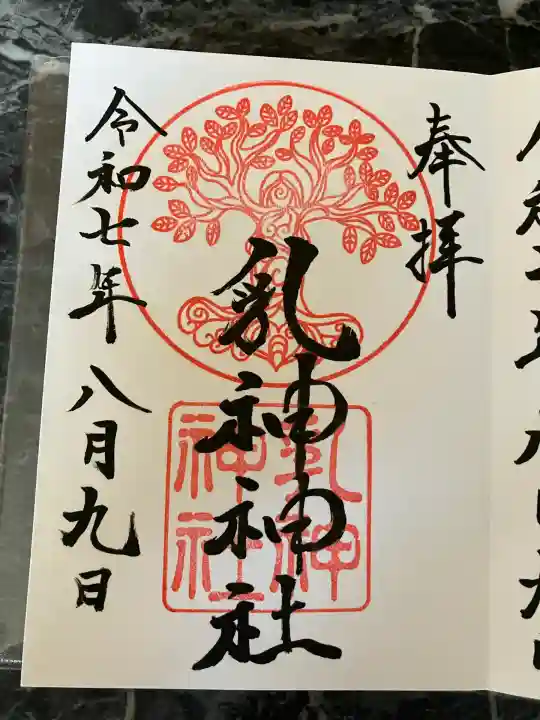 奉拝
乳神神社
乳神
神社
令和七年八月九日